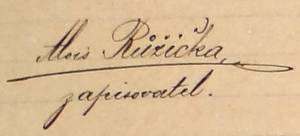 Alois Růžička,
zapisovatel.